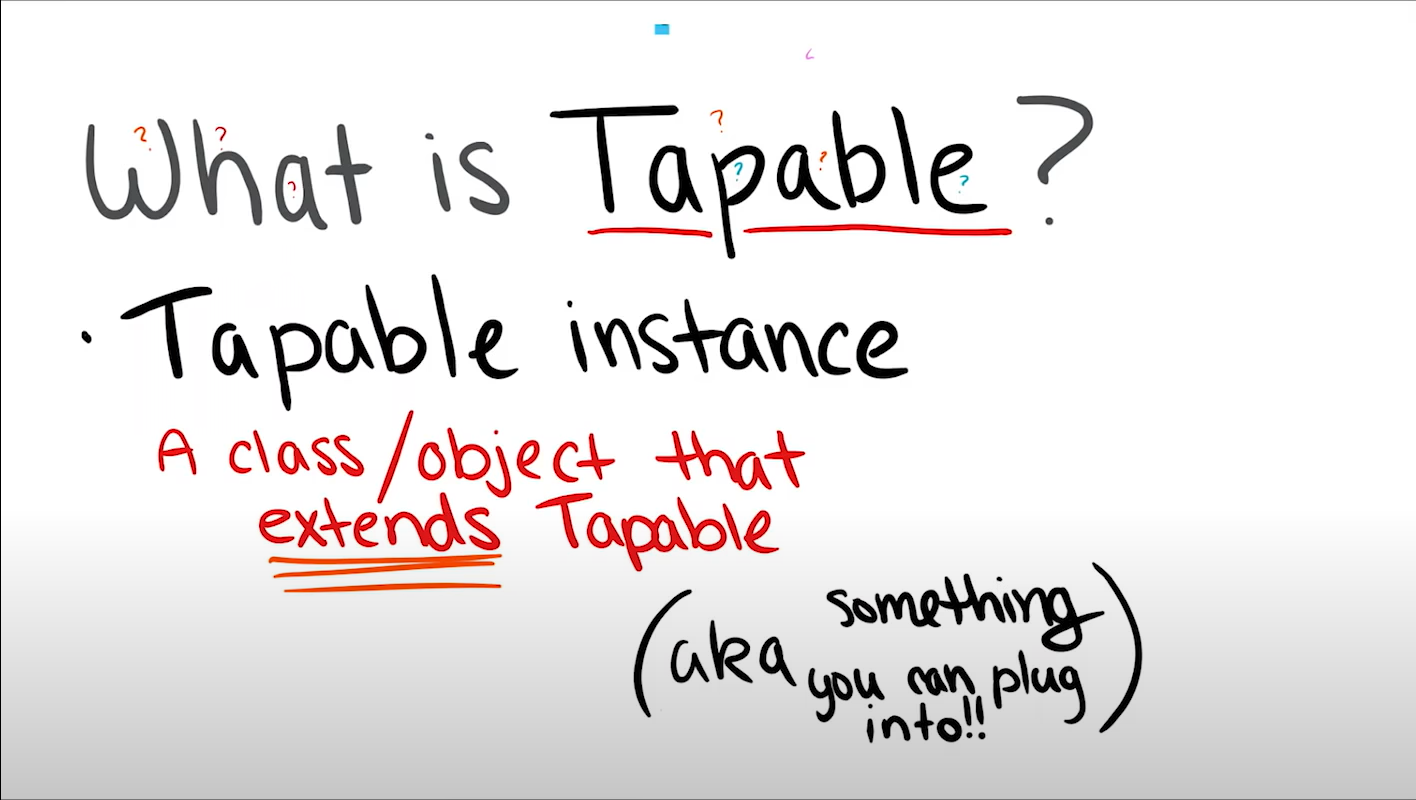 What is Tapable?
• Tapable instance
A class/object that
extends Tapable
(aka something
you can plug
into!!)